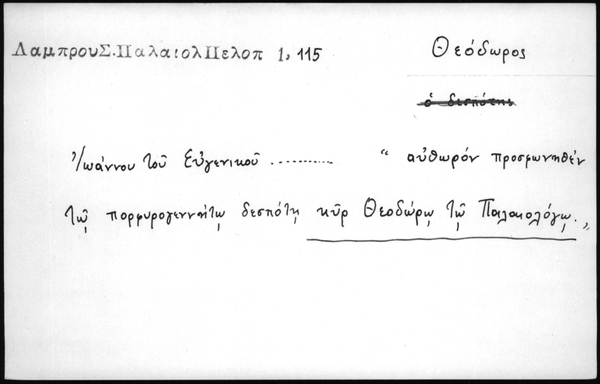 ΛαμπρουΣ.ΠαλαιολΠελοπ 1, 115
Θεόδωρος
ὁ δεσπότης
Ἰωάννου τοῦ Εὐγενικοῦ ............ " αὐθωρόν προσφωνηθέν
τῷ πορφυρογεννήτῳ δεσπότῃ κῦρ Θεοδώρῳ τῷ Παλαιολόγῳ.„